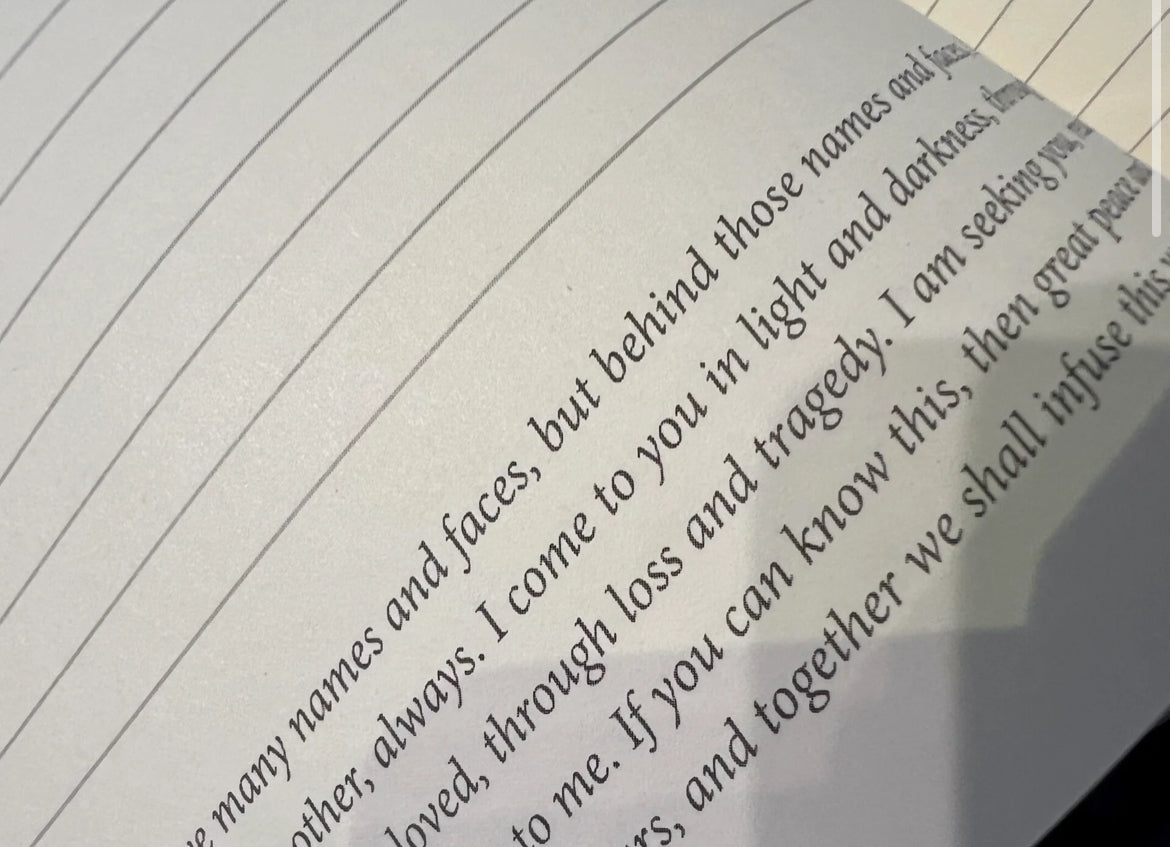 many names and faces, but behind those names and faces
other, always. I come to you in light and darkness,
loved, through loss and tragedy. I am seeking you,
to me. If you can know this, then great peace
and together we shall infuse this